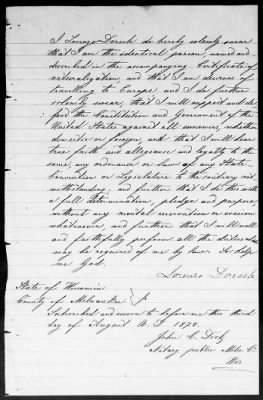 I Lorenzo Dorsch do hereby solemnly swear
that I am the identical person, named and
described in the accompanying Certificate of
naturalization, and that I am desirous of
travelling to Europe and I do further
solemnly swear, that I will support and de
fend the Constitution and Government of the
United States against all enemies, whether
domestic or foreign and that I will bear
true faith and allegiance and loyalty to the
same, any ordinance or law of any State,
Convention or Legislature to the contrary not
withstanding, and further that I do this with
a full determination, pledge and purpose
without any mental reservation or evasion
whatsoever, and further that I will well
and faithfully perform all the duties which
may be required of me by law. So help
me God.
Lorenzo Dorsch
State of Wisconsin
County of Milwaukee
Subscribed and sworn to before me this third
day of August A. D. 1874.
John C.
Notary public Milw. Co
Wis